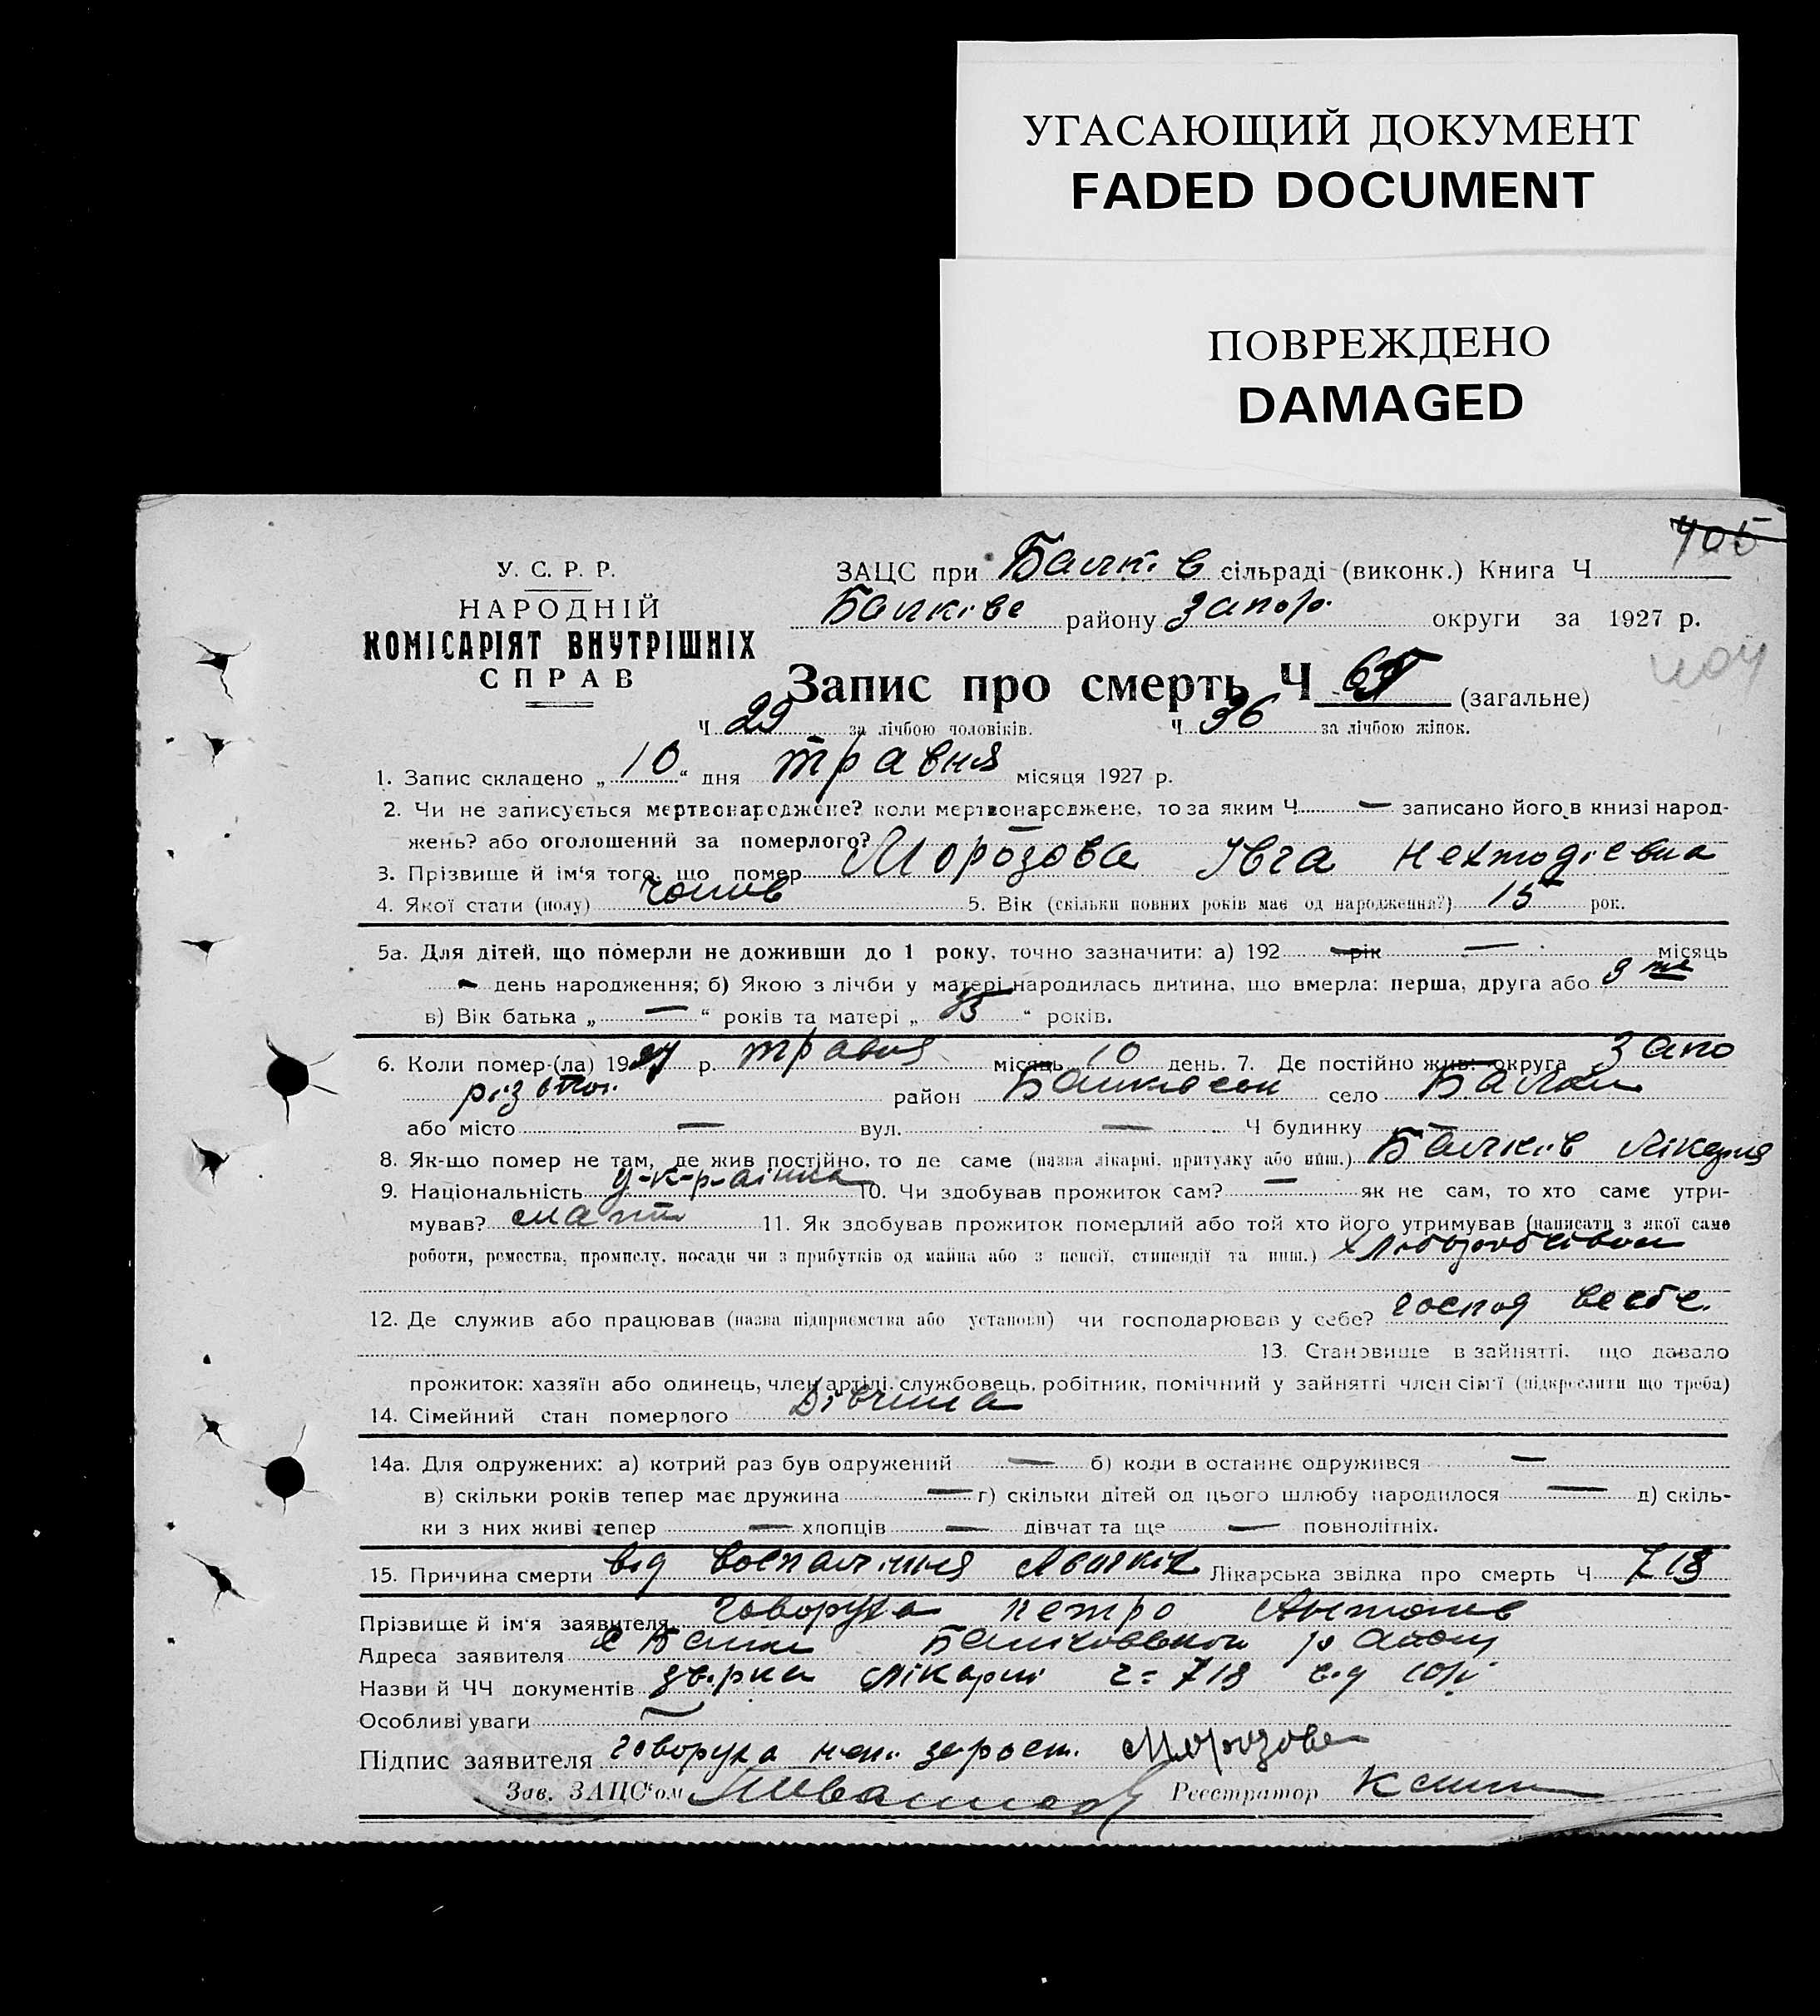 УГАСАЮЩИЙ ДОКУМЕНТ
FADED DOCUMENT
ПОВРЕЖДЕНО
DAMAGED
405
У. С. Р. Р.
НАРОДНІЙ
КОМІСАРІЯТ ВНУТРІШНІХ
СПРАВ
ЗАЦС при Балків сільраді (виконк.) Книга Ч
Балківс району Запор. округи за 1927 р.
404
Запис про смерть Ч 65 (загальне)
Ч 29 за лічбою чоловіків. Ч 36 за лічбою жінок.
1. Запис складено „ 10 “ дня травня місяця 1927 р.
2. Чи не записується мертвонароджене? коли мертвонароджене, то за яким Ч — записано його в книзі народ-
жень? або оголошений за померлого? —
3. Прізвище й ім‘я того, що помер Морозова Івга
4. Якої стати (полу) 5. Вік (скільки повних років має од народження?) 15 рок.
5а. Для дітей, що померли не доживши до 1 року, точно зазначити: а) 192 — рік — місяць
— день народження; б) Якою з лічби у матері народилась дитина, що вмерла: перша, друга або
в) Вік батька „ — “ років та матері „ “ років.
6. Коли помер-(ла) 1927 р. травня місяць 10 день. 7. Де постійно жив: округа Запо
різької район село Балки
або місто — вул. — Ч будинку —
8. Як-що помер не там, де жив постійно, то де саме (назва лікарні, притулку або инш.) Балків лікарня
9. Національність у-к-р-аінка 10. Чи здобував прожиток сам? — як не сам, то хто саме утри-
мував? мати 11. Як здобував прожиток померлий або той хто його утримував (написати з якої саме
роботи, ремества, промислу, посади чи з прибутків од майна або з пенсії, стипендії та инш.)
12. Де служив або працював (назва підприємства або установи) чи господарював у себе? господ в себе.
13. Становище в зайнятті, що давало
прожиток: хазяїн або одинець, член артілі, службовець, робітник, помічний у зайнятті член сім‘ї (підкреслити що треба)
14. Сімейний стан померлого Дівчина
14а. Для одружених: а) котрий раз був одружений — б) коли в останнє одружився —
в) скільки років тепер має дружина — г) скільки дітей од цього шлюбу народилося — д) скіль-
ки з них живі тепер — хлопців — дівчат та ще — повнолітніх.
15. Причина смерти від воспаління Лікарська звідка про смерть Ч 718
Прізвище й ім‘я заявителя Говоруха Петро
Адреса заявителя с Балки району
Назви й ЧЧ документів лікарні ч= 718 від
Особливі уваги —
Підпис заявителя Говоруха Морозова
Зав. ЗАЦС‘ом Реєстратор